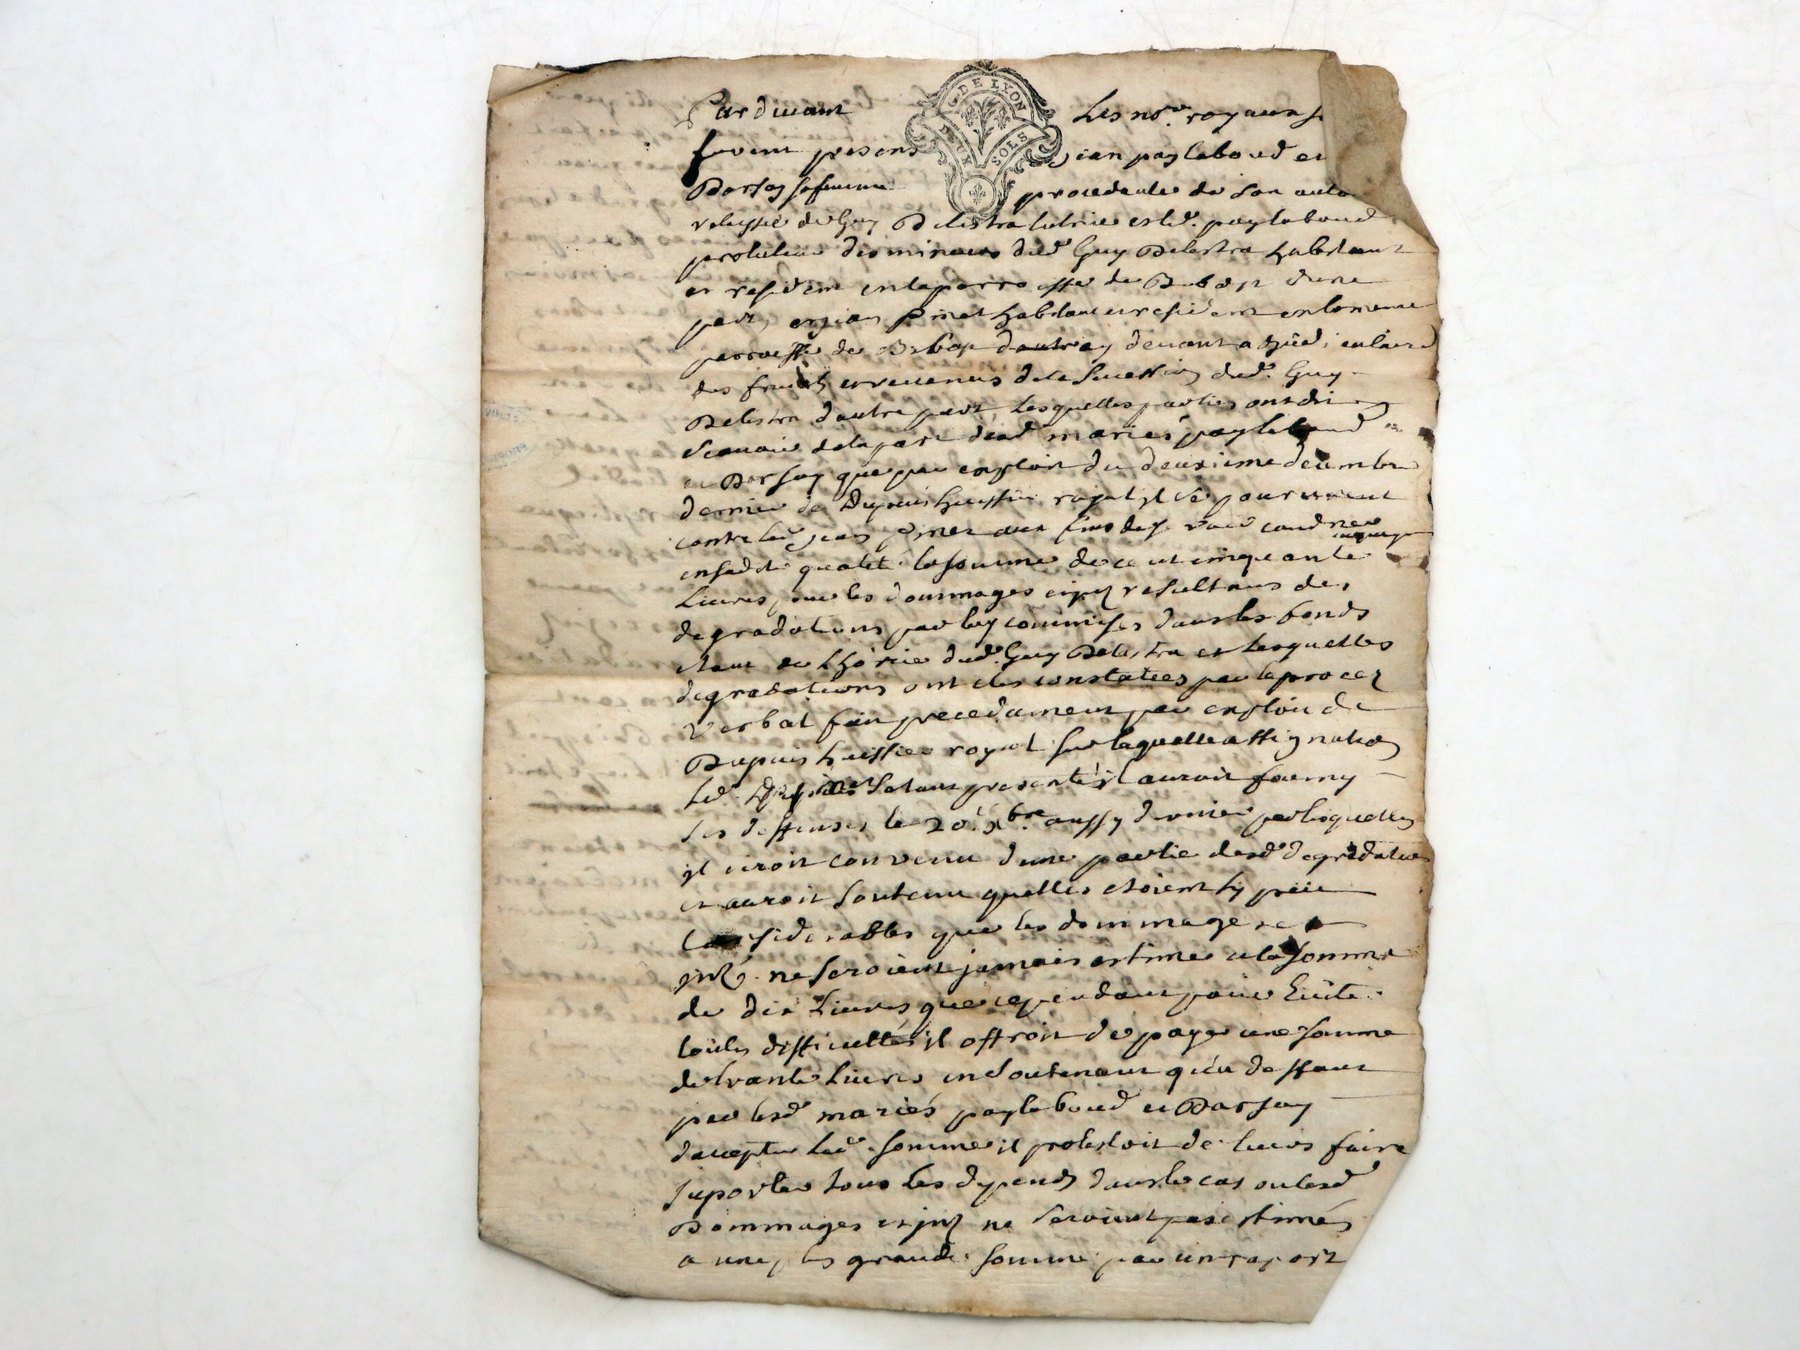 G. DE LYON
DEUX SOLS
Pardevant Les nores. royaux
furent presens jean paylaboud et
Barfay sa femme procedente de son
relaissée de Guy Delestra led. paylaboud
protuteur des mineurs dud. Guy Delestra habitant
et resident en la parroisse de d'une
part, et jean pinet habitant et resident en la meme
parroisse de
des fruits et revenus de la succession dud. Guy
Delestra d'autre part, lesquelles parties ont dit
scavoir de la part desd. mariés paylaboud
et Barfay que par exploit du deuxieme decembre
dernier de Dupuis huissier royal il se pourvurent
contre led. jean pinet aux fins de se voir condner
en sadite qualité la somme de cent cinquante
Livres pour les dommages resultans des
degradations par luy commises dans les fonds
etant de L'hoirie dud. Guy Delestra et lesquelles
degradations ont etes constatées par le procez
verbal fait precedament par exploit de
Dupuis huissier royal sur laquelle assignation
Led. presenté il auroit fourny
ses deffenses le 20e. Xbre. aussy dernier par lesquelles
il seroit convenu d'une partie desd. degradations
et auroit soutenu quelles etoient sy peu
considerables que les dommages et
ne seroient jamais estimés a la somme
de dix Livres que cependant pour Eviter
toutes difficultés il offroit de payer une somme
de trante Livres en soutenant qu'a deffaut
par lesd. mariés paylaboud et Barfay
d'accepter lad. somme il protestoit de leurs faire
suporter tous les depends dans le cas ou lesd.
Dommages et ne seroient pas estimés
a une plus grande somme par un raport